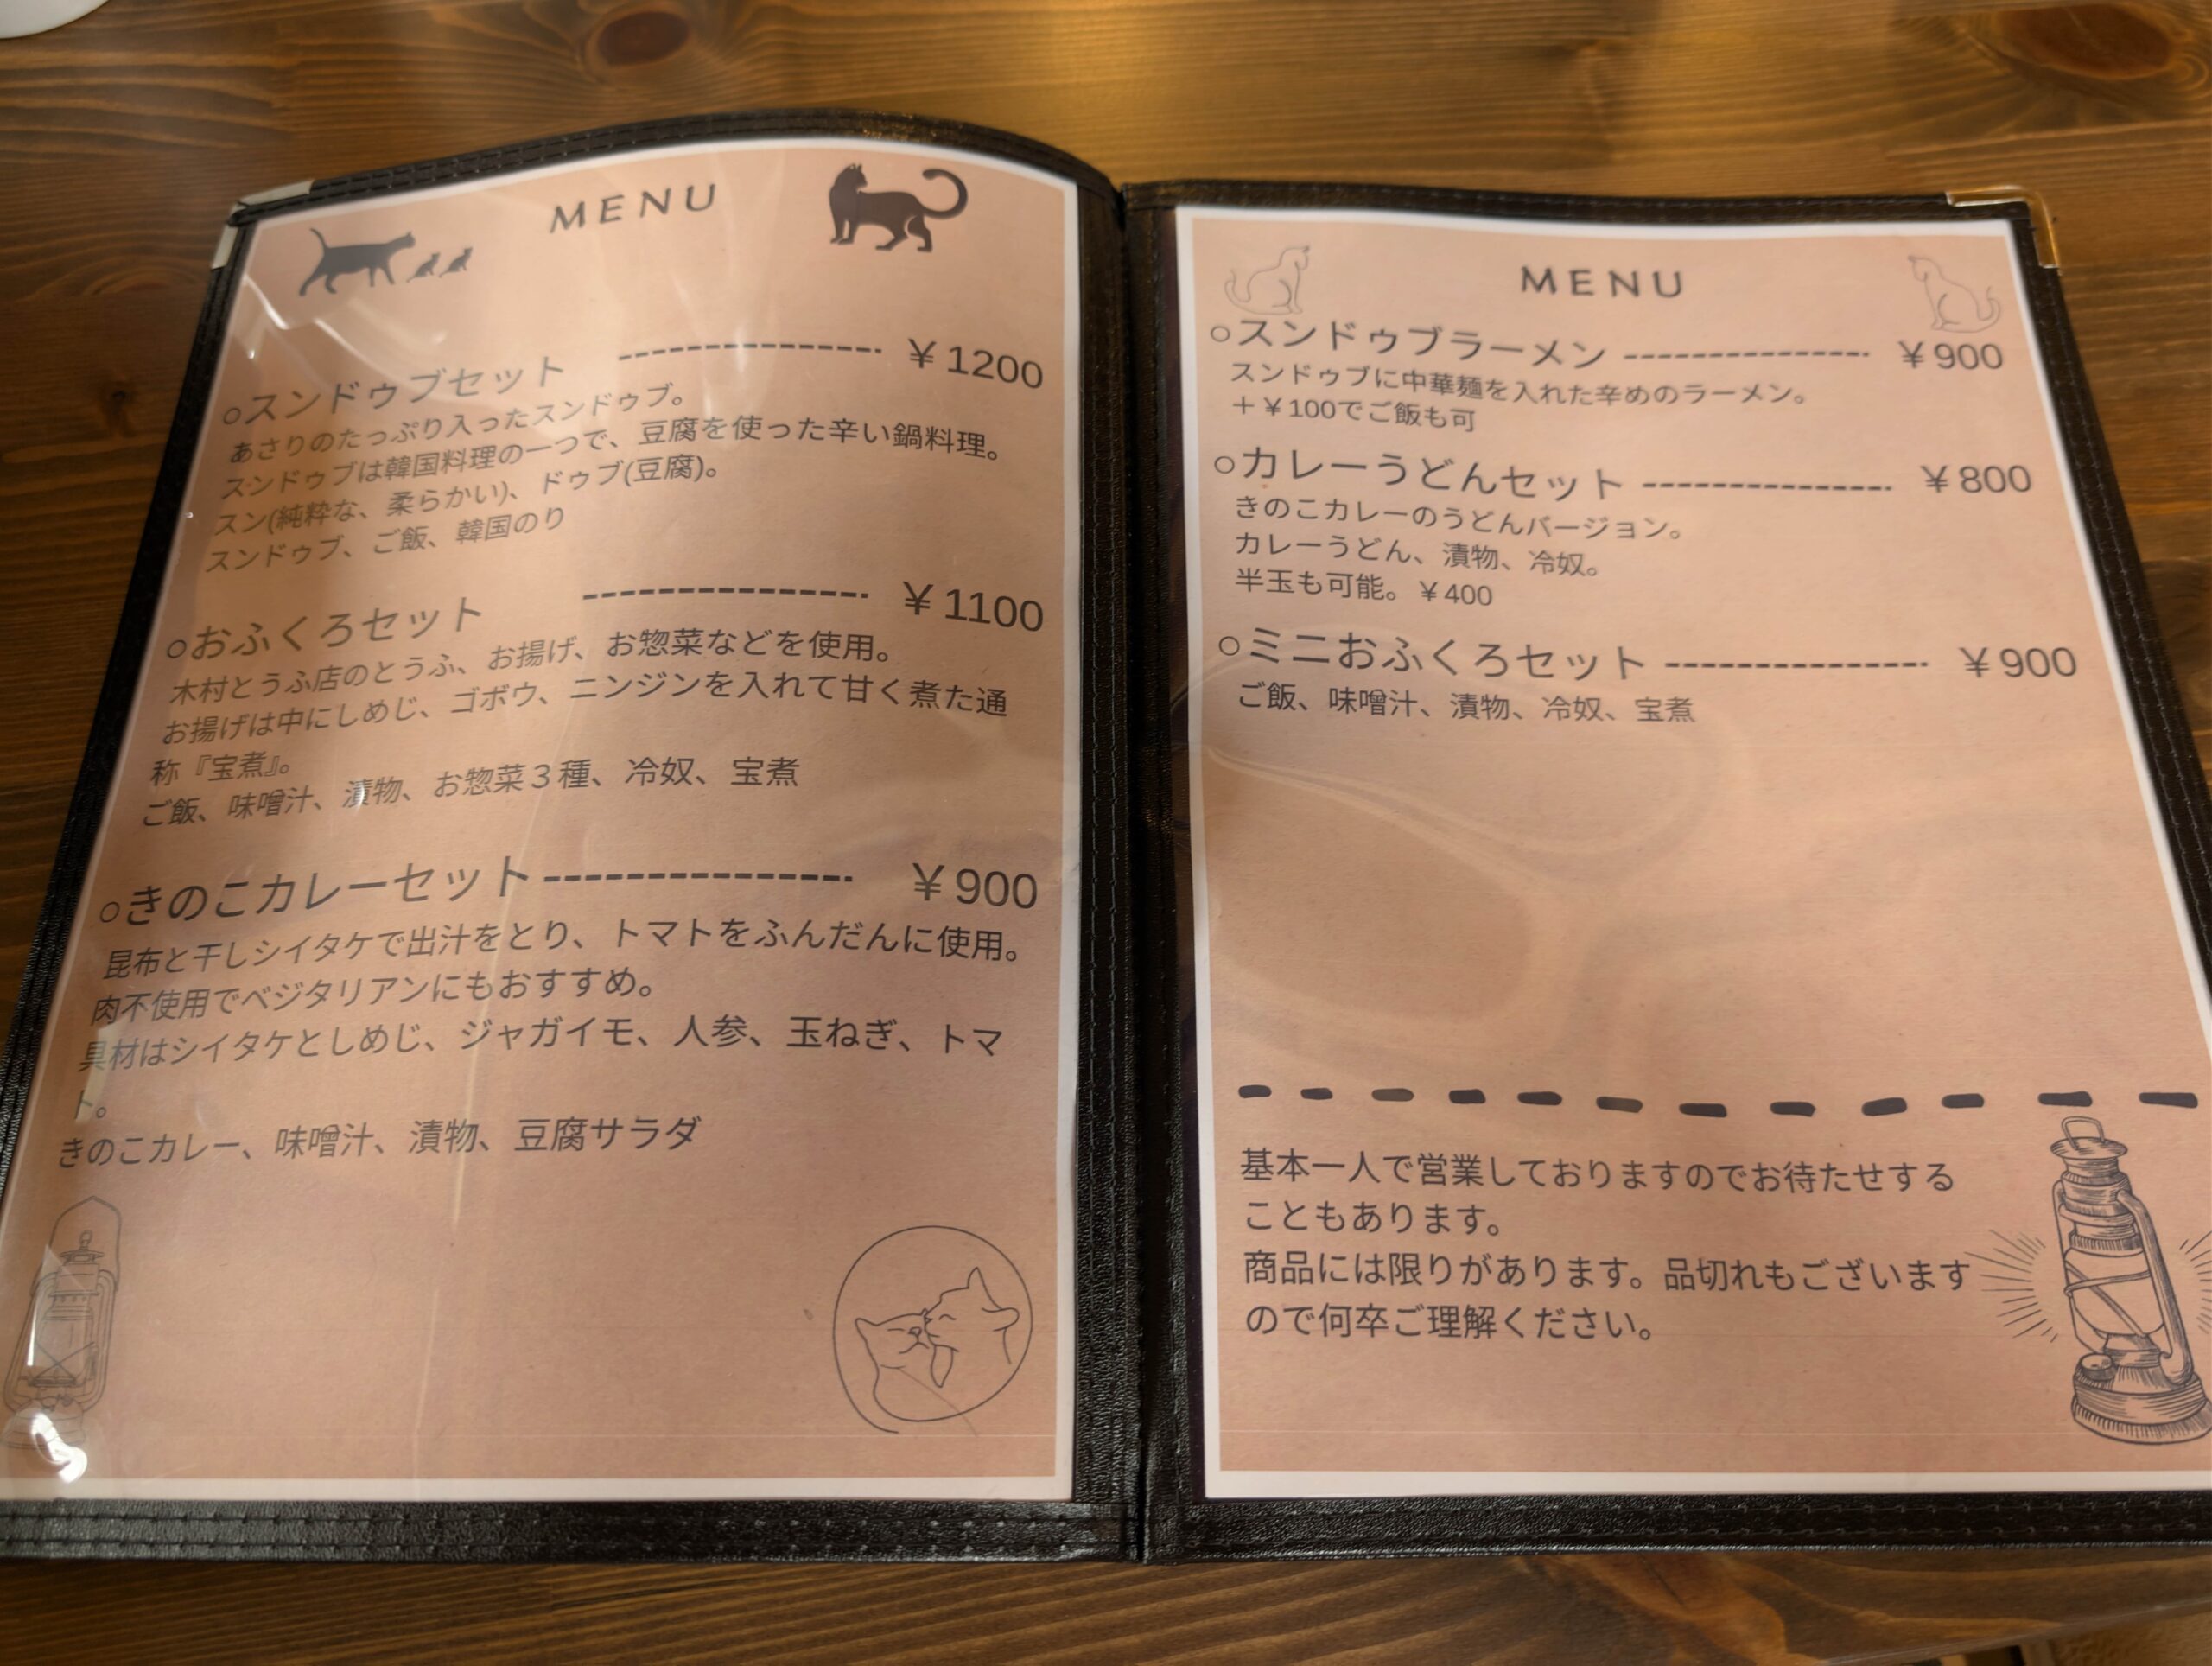 MENU
○スンドゥブセット --------------- ￥1200
あさりのたっぷり入ったスンドゥブ。
スンドゥブは韓国料理の一つで、豆腐を使った辛い鍋料理。
スン(純粋な、柔らかい)、ドゥブ(豆腐)。
スンドゥブ、ご飯、韓国のり
○おふくろセット --------------- ￥1100
木村とうふ店のとうふ、お揚げ、お惣菜などを使用。
お揚げは中にしめじ、ゴボウ、ニンジンを入れて甘く煮た通
称『宝煮』。
ご飯、味噌汁、漬物、お惣菜３種、冷奴、宝煮
○きのこカレーセット --------------- ￥900
昆布と干しシイタケで出汁をとり、トマトをふんだんに使用。
肉不使用でベジタリアンにもおすすめ。
具材はシイタケとしめじ、ジャガイモ、人参、玉ねぎ、トマ
ト。
きのこカレー、味噌汁、漬物、豆腐サラダ
MENU
○スンドゥブラーメン --------------- ￥900
スンドゥブに中華麺を入れた辛めのラーメン。
＋￥100でご飯も可
○カレーうどんセット --------------- ￥800
きのこカレーのうどんバージョン。
カレーうどん、漬物、冷奴。
半玉も可能。￥400
○ミニおふくろセット --------------- ￥900
ご飯、味噌汁、漬物、冷奴、宝煮
基本一人で営業しておりますのでお待たせする
こともあります。
商品には限りがあります。品切れもございます
ので何卒ご理解ください。